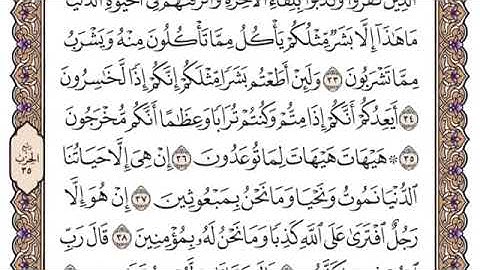 الَّذِينَ كَفَرُوا وَكَذَّبُوا بِلِقَاءِ الْآخِرَةِ وَأَتْرَفْنَاهُمْ فِي الْحَيَوٰةِ الدُّنْيَا
مَا هَٰذَا إِلَّا بَشَرٌ مِّثْلُكُمْ يَأْكُلُ مِمَّا تَأْكُلُونَ مِنْهُ وَيَشْرَبُ
مِمَّا تَشْرَبُونَ ٣٣ وَلَئِنْ أَطَعْتُم بَشَرًا مِّثْلَكُمْ إِنَّكُمْ إِذًا لَّخَٰسِرُونَ
٣٤ أَيَعِدُكُمْ أَنَّكُمْ إِذَا مِتُّمْ وَكُنتُمْ تُرَابًا وَعِظَٰمًا أَنَّكُم مُّخْرَجُونَ
٣٥ ۞ هَيْهَاتَ هَيْهَاتَ لِمَا تُوعَدُونَ ٣٦ إِنْ هِيَ إِلَّا حَيَاتُنَا
الدُّنْيَا نَمُوتُ وَنَحْيَا وَمَا نَحْنُ بِمَبْعُوثِينَ ٣٧ إِنْ هُوَ إِلَّا
رَجُلٌ افْتَرَىٰ عَلَى اللَّهِ كَذِبًا وَمَا نَحْنُ لَهُ بِمُؤْمِنِينَ ٣٨ قَالَ رَبِّ
الحزب
٣٥